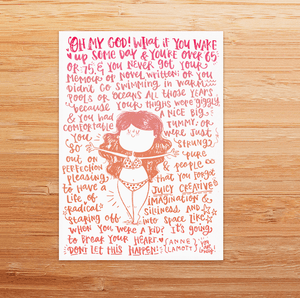 OH MY GOD! WHAT IF YOU WAKE
UP SOME DAY & YOU'RE OVER 65
OR 75, & YOU NEVER GOT YOUR
MEMOIR OR NOVEL WRITTEN; OR YOU
DIDN'T GO SWIMMING IN WARM
POOLS OR OCEANS ALL THOSE YEARS
BECAUSE YOUR THIGHS WERE JIGGLY
& YOU HAD A NICE BIG
COMFORTABLE TUMMY; OR
YOU WERE JUST
SO STRUNG
OUT ON PURE
PERFECTION & PEOPLE
PLEASING THAT YOU FORGET
TO HAVE A JUICY CREATIVE
LIFE OF IMAGINATION &
RADICAL SILLINESS, AND
STARING OFF INTO SPACE LIKE
WHEN YOU WERE A KID? IT'S GOING
TO BREAK YOUR HEART.
DON'T LET THIS HAPPEN! (ANNE
LAMOTT)